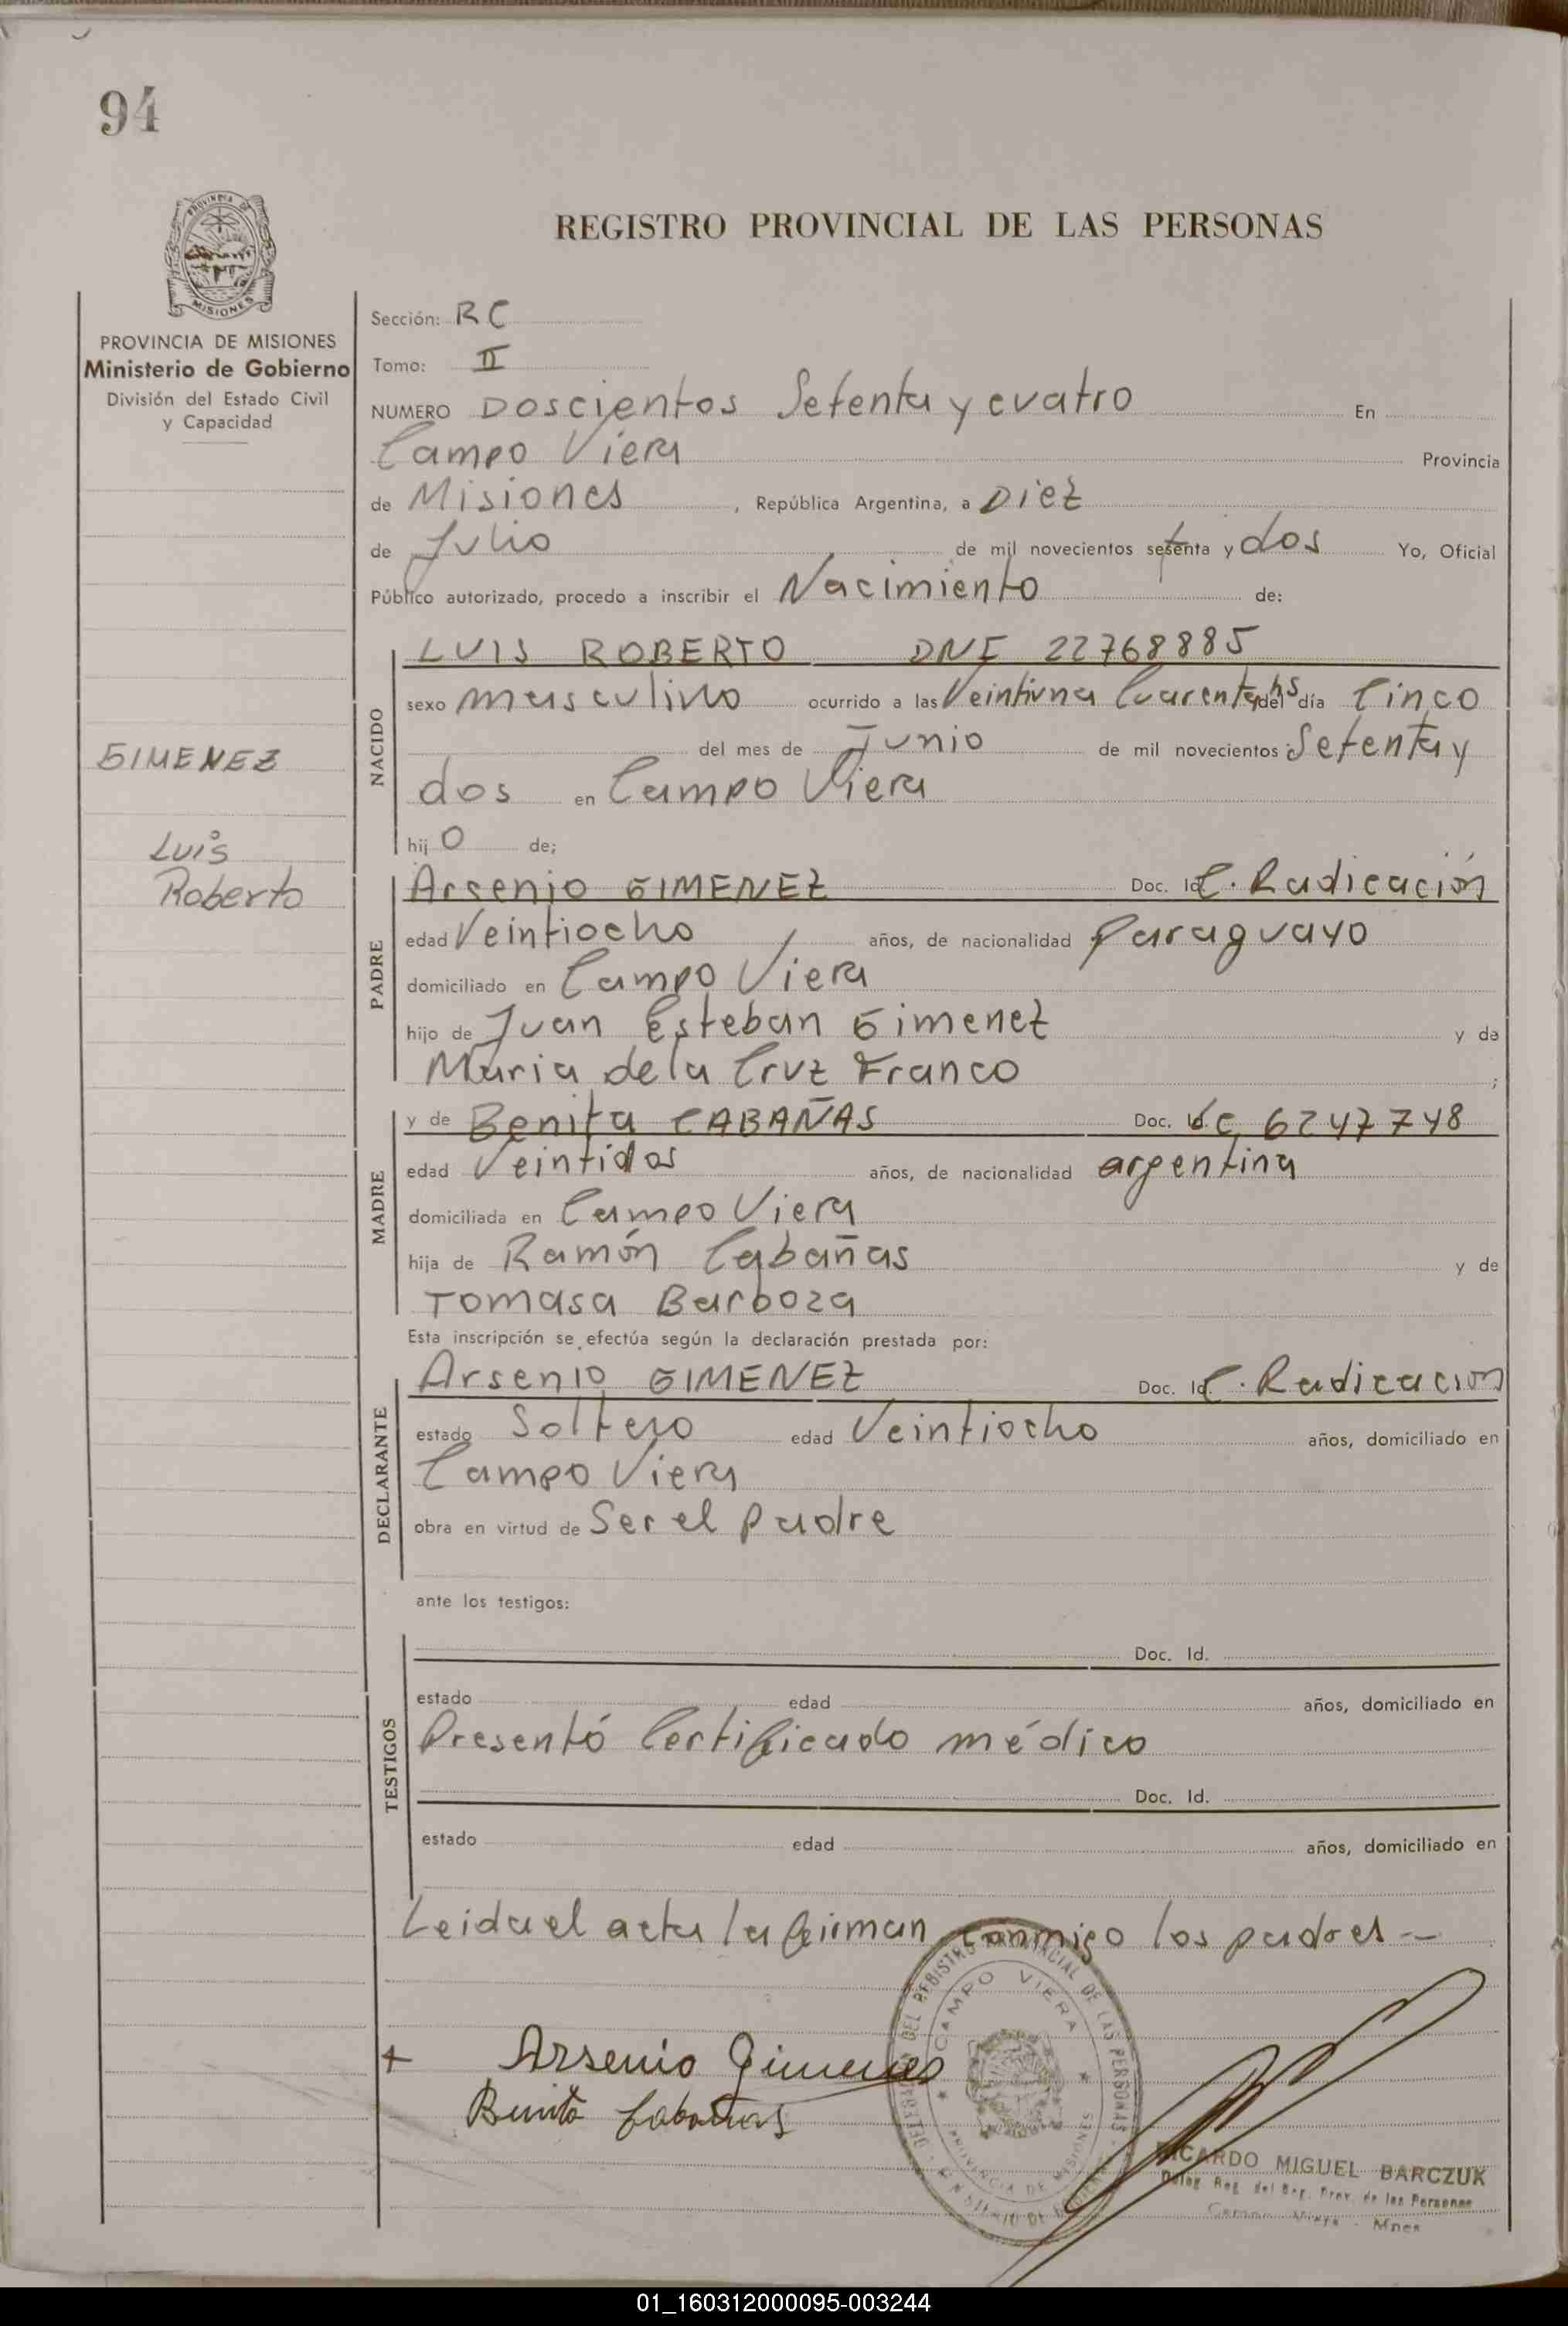 94
PROVINCIA DE
MISIONES
PROVINCIA DE MISIONES
Ministerio de Gobierno
División del Estado Civil
y Capacidad
GIMENEZ
Luis
Roberto
REGISTRO PROVINCIAL DE LAS PERSONAS
Sección: RC
Tomo: II
NUMERO Doscientos Setenta y cuatro En
Campo Viera Provincia
de Misiones, República Argentina, a Diez
de Julio de mil novecientos setenta y dos Yo, Oficial
Público autorizado, procedo a inscribir el Nacimiento de:
NACIDO
LUIS ROBERTO DNI 22768885
sexo masculino ocurrido a las Veintiuna Cuarenta hs del día Cinco
del mes de Junio de mil novecientos Setenta y
dos en Campo Viera
hij o de;
PADRE
Arsenio GIMENEZ Doc. Id. C. Radicación
edad Veintiocho años, de nacionalidad Paraguayo
domiciliado en Campo Viera
hijo de Juan Esteban Gimenez y de
Maria de la Cruz Franco ;
MADRE
y de Benita CABAÑAS Doc. LC 6247748
edad Veintidos años, de nacionalidad argentina
domiciliada en Campo Viera
hija de Ramón Cabañas y de
Tomasa Barboza
Esta inscripción se efectúa según la declaración prestada por:
DECLARANTE
Arsenio GIMENEZ Doc. Id. C. Radicacion
estado Soltero edad Veintiocho años, domiciliado en
Campo Viera
obra en virtud de Ser el padre
ante los testigos:
TESTIGOS
Doc. Id.
estado edad años, domiciliado en
Presentó Certificado médico
Doc. Id.
estado edad años, domiciliado en
Leida el acta la firman conmigo los padres —
+ Arsenio Gimenes
Benita Cabañas
DEL REGISTRO PROVINCIAL DE LAS PERSONAS
CAMPO VIERA
PROVINCIA DE MISIONES
RICARDO MIGUEL BARCZUK
Deleg. Reg. del Reg. Prov. de las Personas
Campo Viera - Mnes
01_160312000095-003244